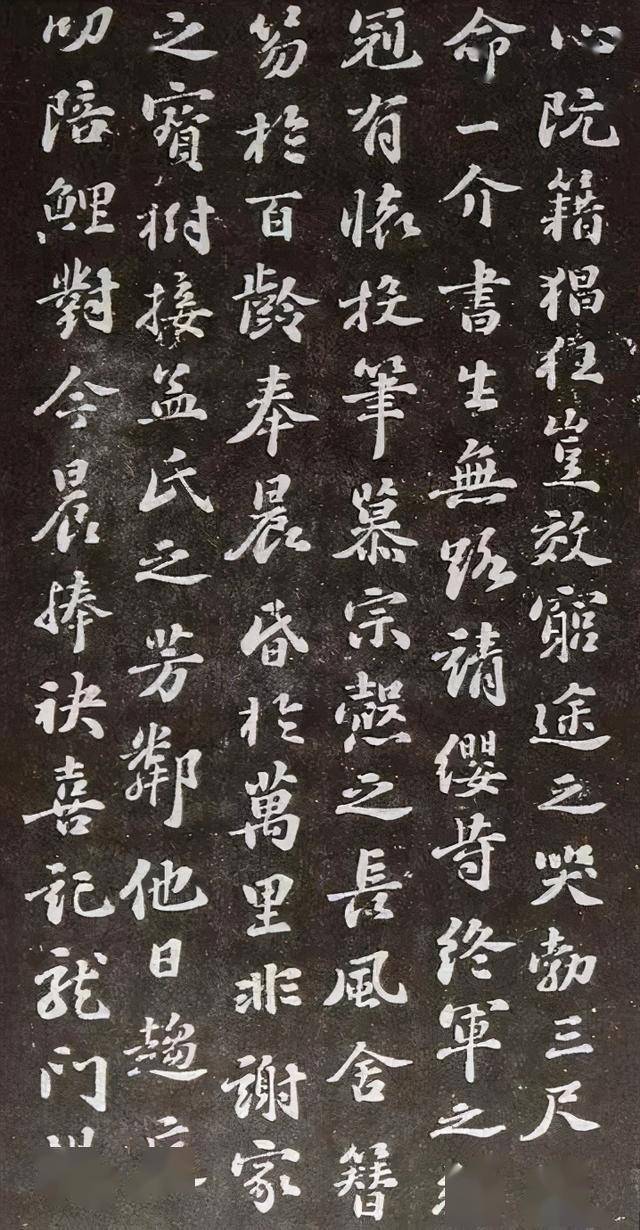 心阮籍猖狂豈效窮途之哭勃三尺
命一介書生無路請纓等終軍之
冠有懷投筆慕宗愨之長風舍簪
笏於百齡奉晨昏於萬里非謝家
之寶樹接孟氏之芳鄰他日趨
叨陪鯉對今晨捧袂喜記龍門